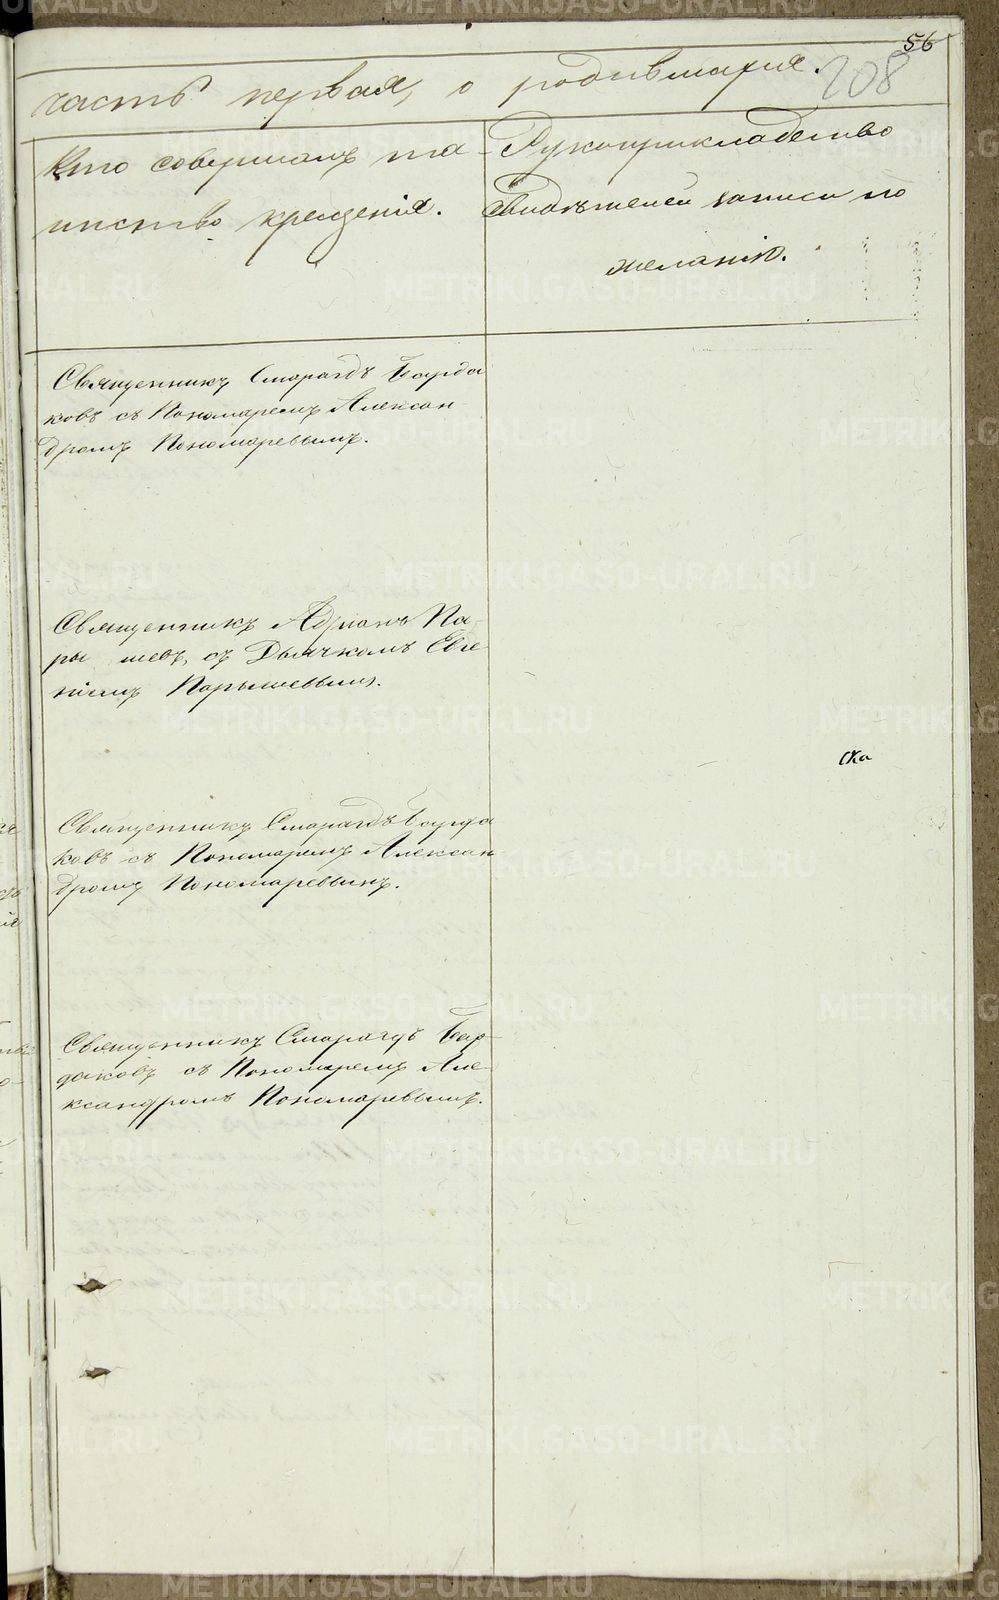 56
208
часть первая, о родившихся.
Кто совершалъ та-
инство крещенія.
Рукоприкладство
свидѣтелей записи по
желанію.
Священникъ Смарагдъ Бурда
ковъ съ Пономаремъ Алексан
дромъ Пономаревымъ.
Священникъ Адріанъ Па
ры шевъ, съ Дьячкомъ Евге
ніемъ Парышевымъ.
ска
Священникъ Смарагдъ Бурда
ковъ съ Пономаремъ Алексан
дромъ Пономаревымъ.
Священникъ Смарагдъ Бур-
даковъ съ Пономаремъ Але
ксандромъ Пономаревымъ.
METRIKI.GASO-URAL.RU